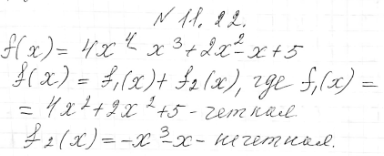 N 11. 22.
f(x) = 4x⁴ - x³ + 2x² - x + 5
f(x) = f₁(x) + f₂(x), где f₁(x) =
= 4x² + 2x² + 5 - четная
f₂(x) = -x³ - x - нечетная.